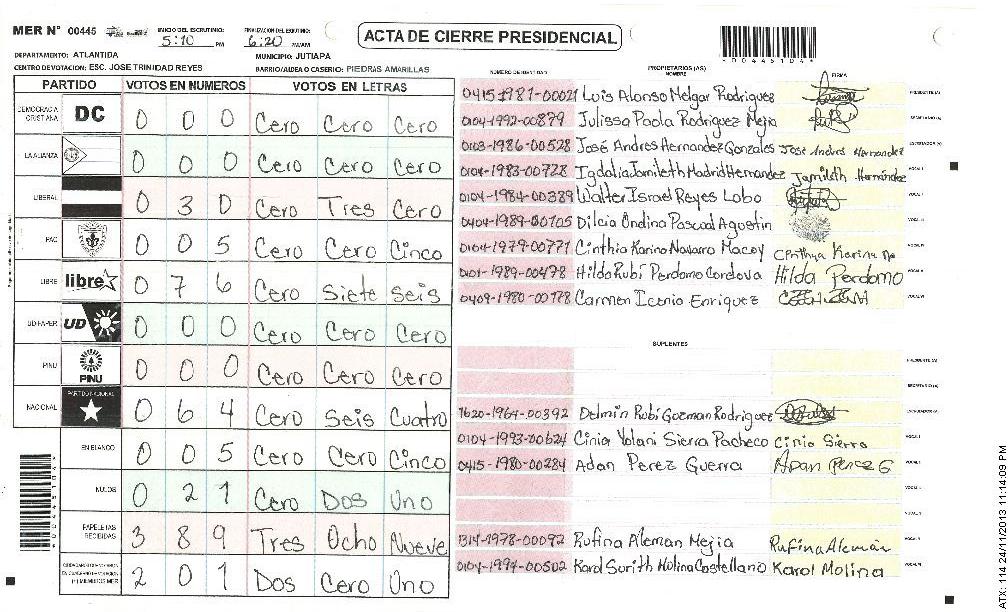 MER N° 00445
INICIO DEL ESCRUTINIO: 5:10 PM
FINALIZACION DEL ESCRUTINIO: 6:20 PM/AM
ACTA DE CIERRE PRESIDENCIAL
DEPARTAMENTO: ATLANTIDA
MUNICIPIO: JUTIAPA
CENTRO DE VOTACION: ESC. JOSE TRINIDAD REYES
BARRIO/ALDEA O CASERIO: PIEDRAS AMARILLAS
PARTIDO VOTOS EN NUMEROS VOTOS EN LETRAS
DEMOCRACIA CRISTIANA DC 0 0 0 Cero Cero Cero
LA ALIANZA 0 0 0 Cero Cero Cero
LIBERAL 0 3 0 Cero Tres Cero
PAC 0 0 5 Cero Cero Cinco
LIBRE libre 0 7 6 Cero Siete Seis
UD FAPER UD 0 0 0 Cero Cero Cero
PINU PINU 0 0 0 Cero Cero Cero
NACIONAL PARTIDO NACIONAL 0 6 4 Cero Seis Cuatro
EN BLANCO 0 0 5 Cero Cero Cinco
NULOS 0 2 1 Cero Dos Uno
PAPELETAS RECIBIDAS 3 8 9 Tres Ocho Nueve
(+) MIEMBROS MER 2 0 1 Dos Cero Uno
NUMERO DE IDENTIDAD PROPIETARIOS (AS) NOMBRE FIRMA
0415 1981-00021 Luis Alonso Melgar Rodriguez PRESIDENTE (A)
0104-1992-00879 Julissa Paola Rodriguez Mejia SECRETARIO (A)
0103-1986-00528 José Andres Hernandez Gonzales Jose Andres Hernandez ESCRUTADOR (A)
0104-1983-00728 Igdalia Jamileth Madrid Hernandez Jamileth Hernández VOCAL I
0104-1984-00339 Walter Israel Reyes Lobo VOCAL II
0404-1989-00105 Dilcia Ondina Pascual Agustin VOCAL III
0104-1979-00771 Cinthia Karina Navarro Macoy Cinthya Karina Na VOCAL IV
0101-1989-00478 Hilda Rubí Perdomo Cordova Hilda Perdomo VOCAL V
0409-1980-00178 Carmen Iconio Enriquez VOCAL VI
SUPLENTES
PRESIDENTE (A)
SECRETARIO (A)
1620-1964-00392 Delmin Rubi Guzman Rodriguez ESCRUTADOR (A)
0104-1993-00624 Cinia Yolani Sierra Pacheco Cinia Sierra VOCAL I
0415-1980-00284 Adan Perez Guerra Adan Perez G VOCAL II
1314-1978-00092 Rufina Aleman Mejia Rufina Alemán
0104-1994-00502 Karol Surith Molina Castellano Karol Molina
ATX: 114 24/11/2013 11:14:09 PM